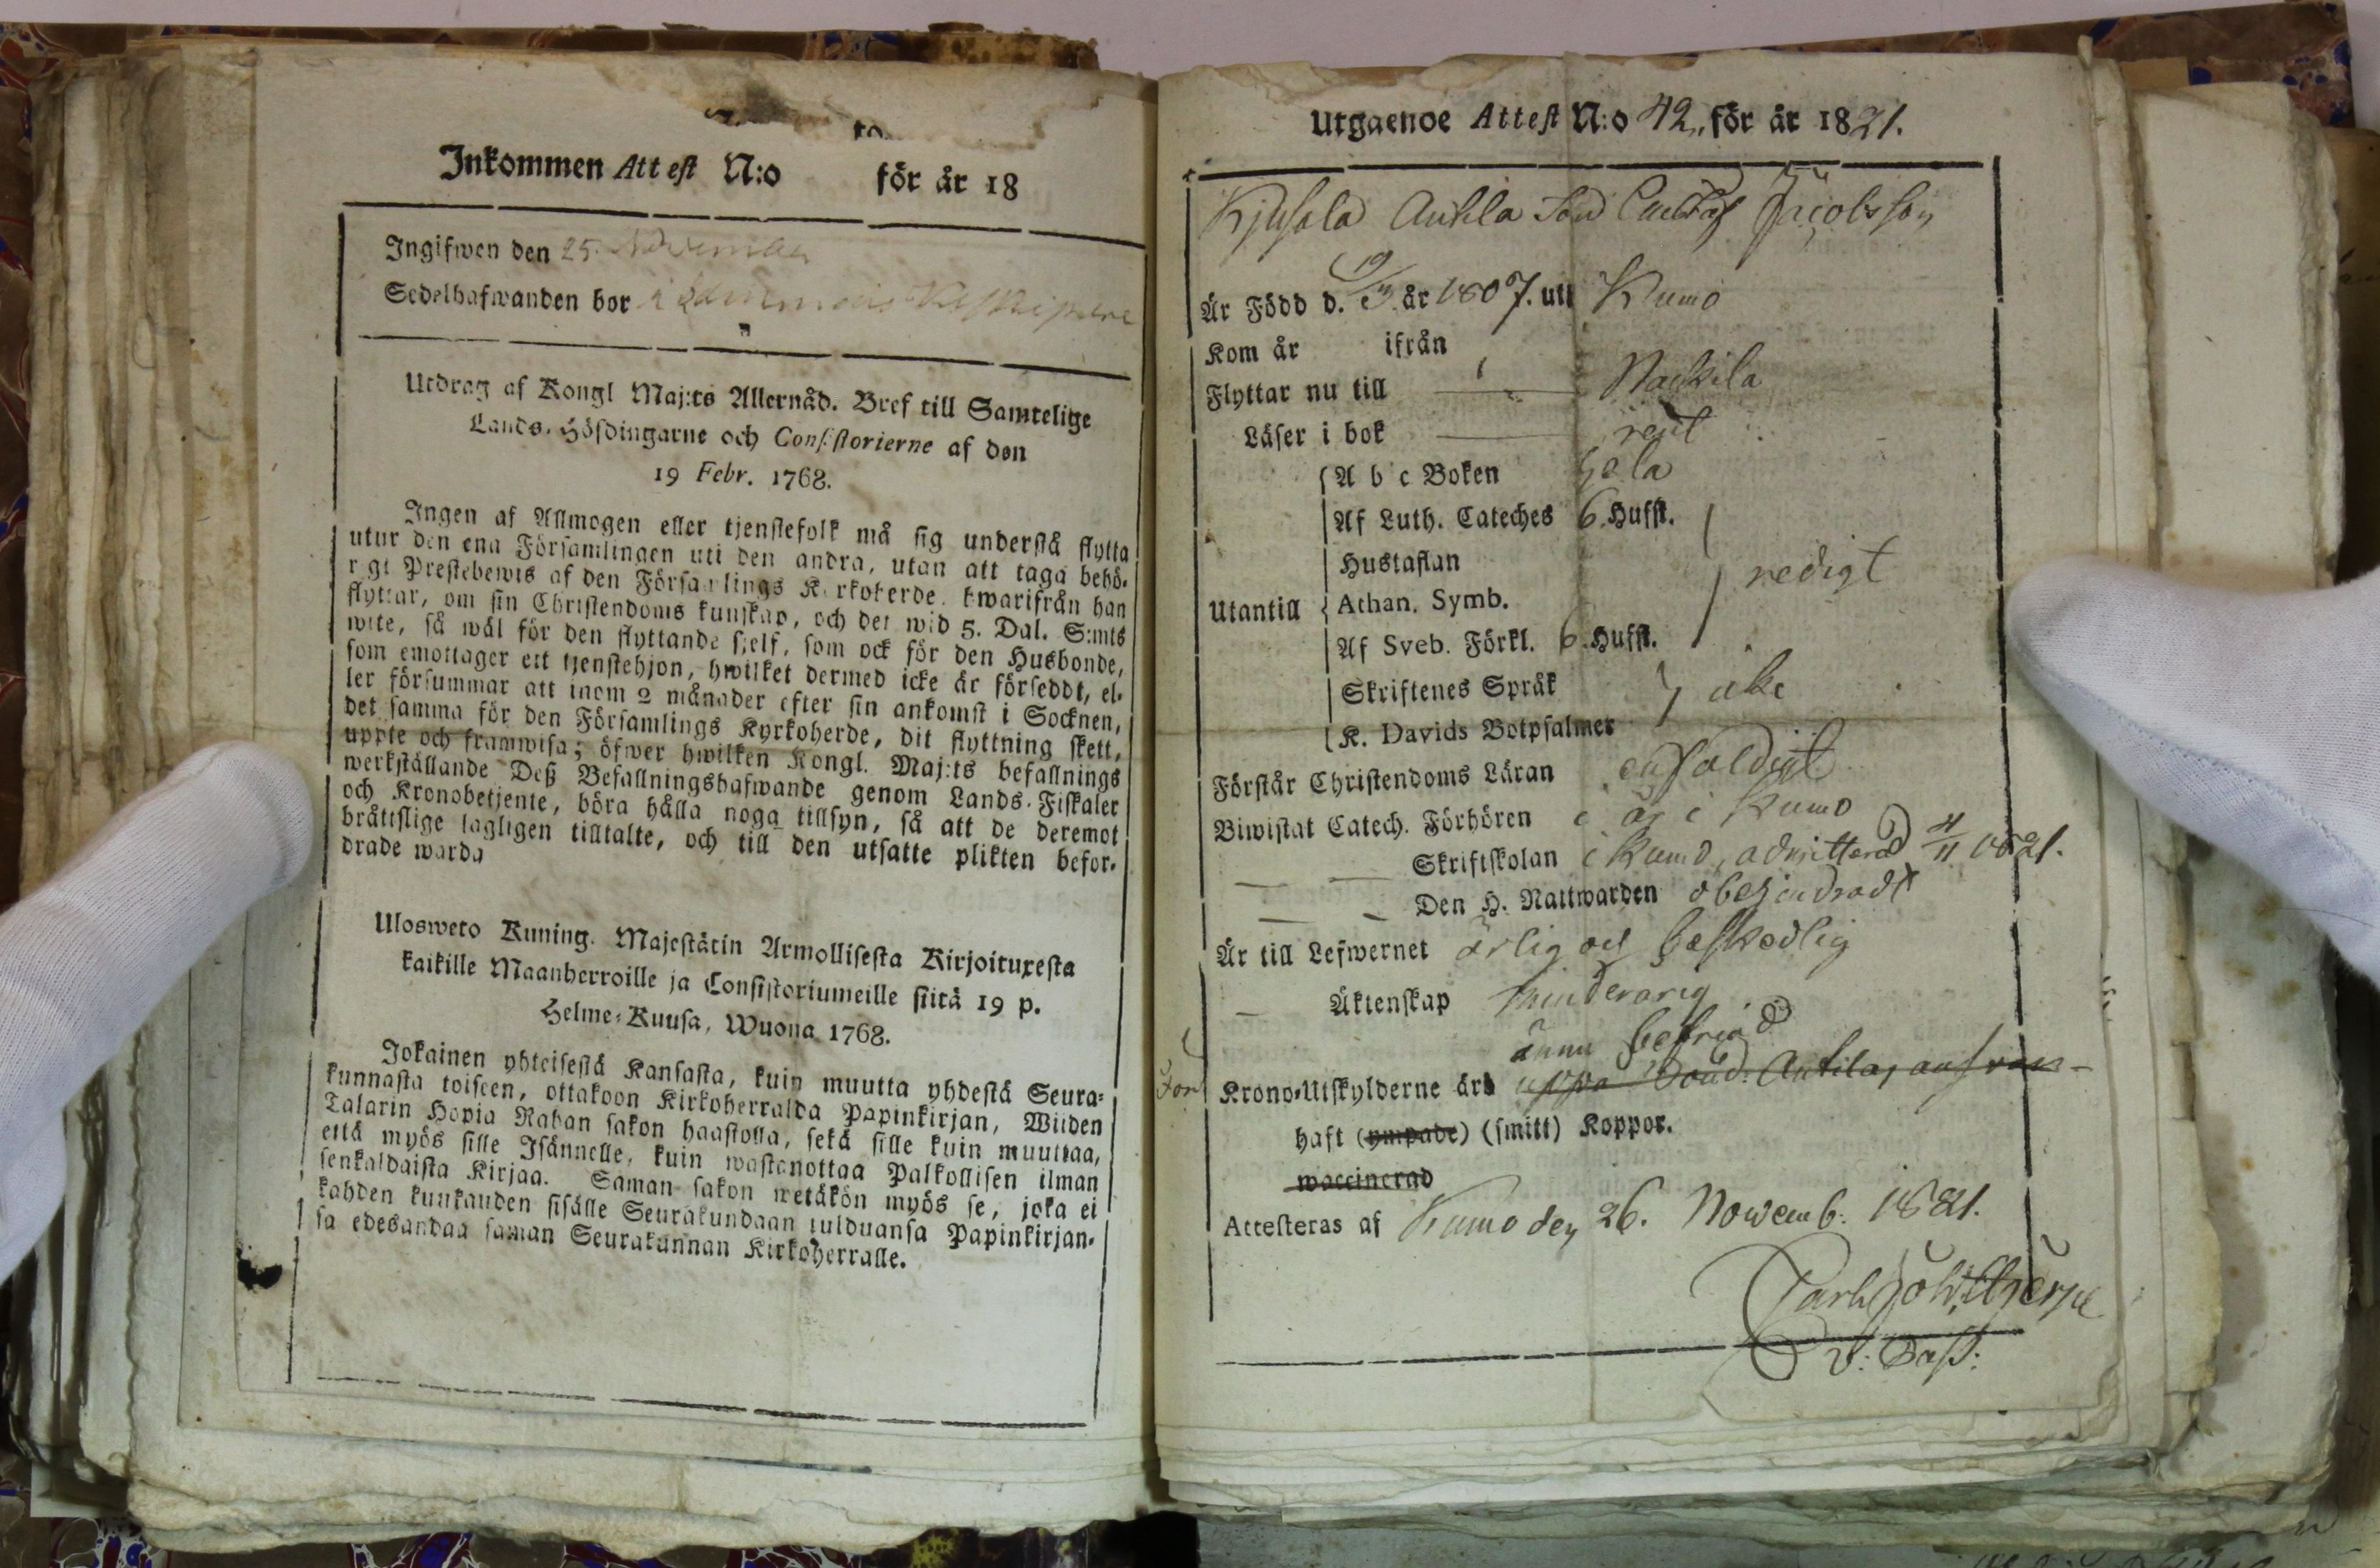 Inkommen Attest N:o för år 18
Ingifwen den 25. November
Sedelhafwanden bor i
Utdrag af Kongl Maj:ts Allernåd. Bref till Samtelige
Lands-Höfdingarne och Consistorierne af den
19 Febr. 1768.
Ingen af Allmogen eller tjenstefolk må sig understå flytta
utur den ena Församlingen uti den andra, utan att taga behö-
rigt Prestebewis af den Församlings Kyrkoherde, hwarifrån han
flyttar, om sin Christendoms kunskap, och det wid 5. Dal. S:mts
wite, så wäl för den flyttande sjelf, som ock för den Husbonde,
som emottager ett tjenstehjon, hwilket dermed icke är förseddt, el-
ler försummar att inom 2 månader efter sin ankomst i Socknen,
det samma för den Församlings Kyrkoherde, dit flyttning skett,
uppte och framwisa; öfwer hwilken Kongl. Maj:ts befallnings
werkställande Deß Befallningshafwande genom Lands-Fiskaler
och Kronobetjente, böra hålla noga tillsyn, så att de deremot
bråttslige lagligen tilltalte, och till den utsatte plikten befor-
drade warda
Ulosweto Kuning. Majestätin Armollisesta Kirjoituxesta
kaikille Maanherroille ja Consistoriumeille siitä 19 p.
Helme-Kuusa, Wuona 1768.
Jokainen yhteisestä Kansasta, kuin muutta yhdestä Seura-
kunnasta toiseen, ottakoon Kirkoherralda Papinkirjan, Wiiden
Talarin Hopia Rahan sakon haastolla, sekä sille kuin muuttaa,
että myös sille Isännelle, kuin wastanottaa Palkollisen ilman
senkaldaista Kirjaa. Saman sakon wetäkön myös se, joka ei
kahden kuukauden sisälle Seurakundaan tulduansa Papinkirjan-
sa edesandaa saman Seurakunnan Kirkoherralle.
Utgaende Attest N:o 42, för år 1821.
Kjusala Anttila Son Gustaf Jacobsson
Är Född d. 19/3 år 1807. uti Kumo
Kom år ifrån
Flyttar nu till Nackila
Läser i bok rent
A b c Boken hela
Af Luth. Cateches 6 Hufst.
Hustaflan
Utantill Athan. Symb. redigt
Af Sveb. Förkl. 6 Hufst.
Skriftenes Språk
K. Davids Botpsalmer } icke
Förstår Christendoms Läran enfaldigt
Biwistat Catech. Förhören i år i Kumo
Skriftskolan i Kumo, admitterad 4/11 1821.
Den H. Nattwarden obehindradt
Är till Lefwernet ärlig och beskedlig
Äktenskap minderårig
ännu befriad
för Krono-Utskylderne är uppå Bond: Antila
haft (ympade) (smitt) Koppor.
waccinerad
Attesteras af Kumo den 26. Novemb: 1821.
Carl Joh
V: Past: